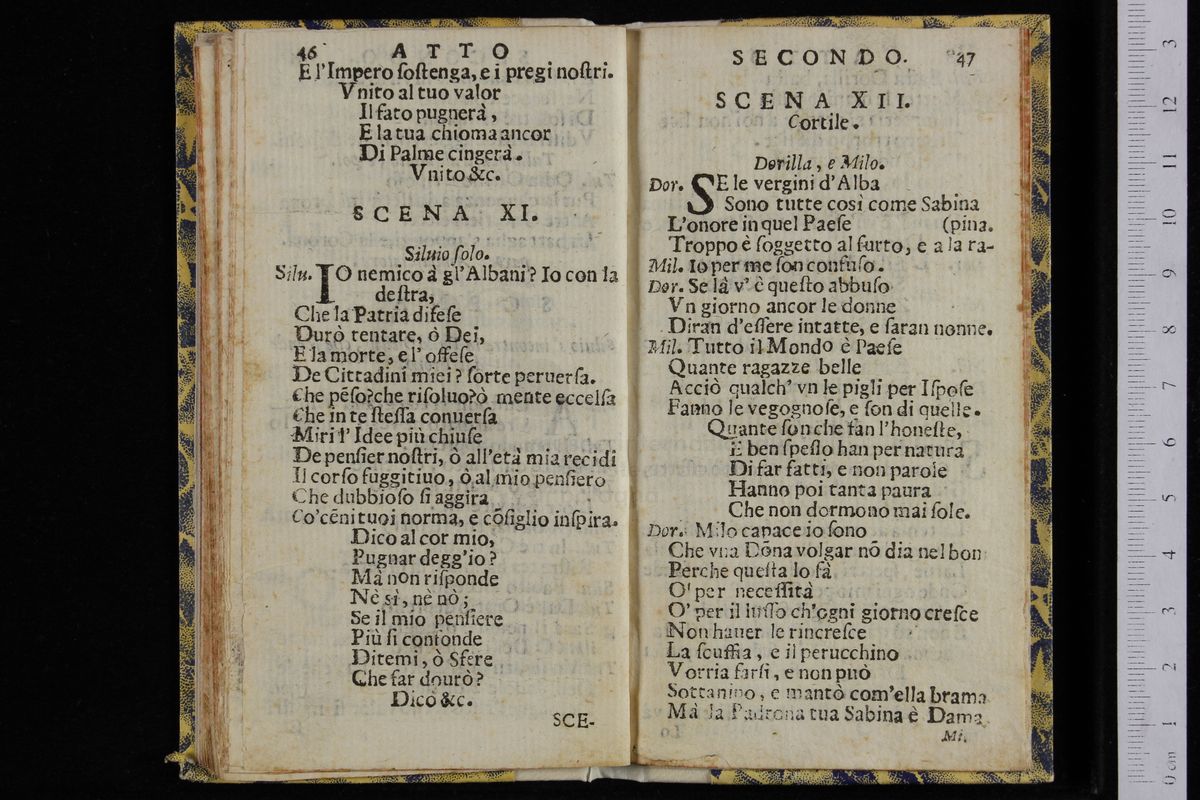 46 ATTO
E l'Impero soſtenga, e i pregi noſtri.
Vnito al tuo valor
Il fato pugnerà,
E la tua chioma ancor
Di Palme cingerà.
Vnito &c.
SCENA XI.
Siluio ſolo.
Silu. IO nemico à gl'Albani? Io con la
deſtra,
Che la Patria difeſe
Durò tentare, ò Dei,
E la morte, e l'offeſe
De Cittadini miei? ſorte peruerſa.
Che pẽſo? che riſoluo? ò mente eccelſa
Che in te ſteſſa conuerſa
Miri l'Idee più chiuſe
De penſier noſtri, ò all'età mia recidi
Il corſo fuggitiuo, ò al mio penſiero
Che dubbioſo ſi aggira
Co'cẽni tuoi norma, e cõſiglio inſpira.
Dico al cor mio,
Pugnar degg'io?
Mà non riſponde
Nè sì, nè nò;
Se il mio penſiere
Più ſi confonde
Ditemi, ò Sfere
Che far dourò?
Dico &c.
SCE-
SECONDO. 47
SCENA XII.
Cortile.
Dorilla, e Milo.
Dor. SE le vergini d'Alba
Sono tutte così come Sabina
L'onore in quel Paeſe (pina.
Troppo è ſoggetto al furto, e a la ra-
Mil. Io per me ſon confuſo.
Dor. Se là v'è queſto abbuſo
Vn giorno ancor le donne
Diran d'eſſere intatte, e ſaran nonne.
Mil. Tutto il Mondo è Paeſe
Quante ragazze belle
Acciò qualch'vn le pigli per Iſpoſe
Fanno le vegognoſe, e ſon di quelle.
Quante ſon che fan l'honeſte,
E ben ſpeſſo han per natura
Di far fatti, e non parole
Hanno poi tanta paura
Che non dormono mai ſole.
Dor. Milo capace io ſono
Che vna Dõna volgar nõ dia nel bon
Perche queſta lo fà
O' per neceſſità
O' per il luſſo ch'ogni giorno creſce
Non hauer le rincreſce
La ſcuffia, e il perucchino
Vorria farſi, e non può
Sottanino, e mantò com'ella brama
Mà la Padrona tua Sabina è Dama
Mi.
3
12
11
10
2
9
8
7
6
5
4
3
2
1
1
0 cm